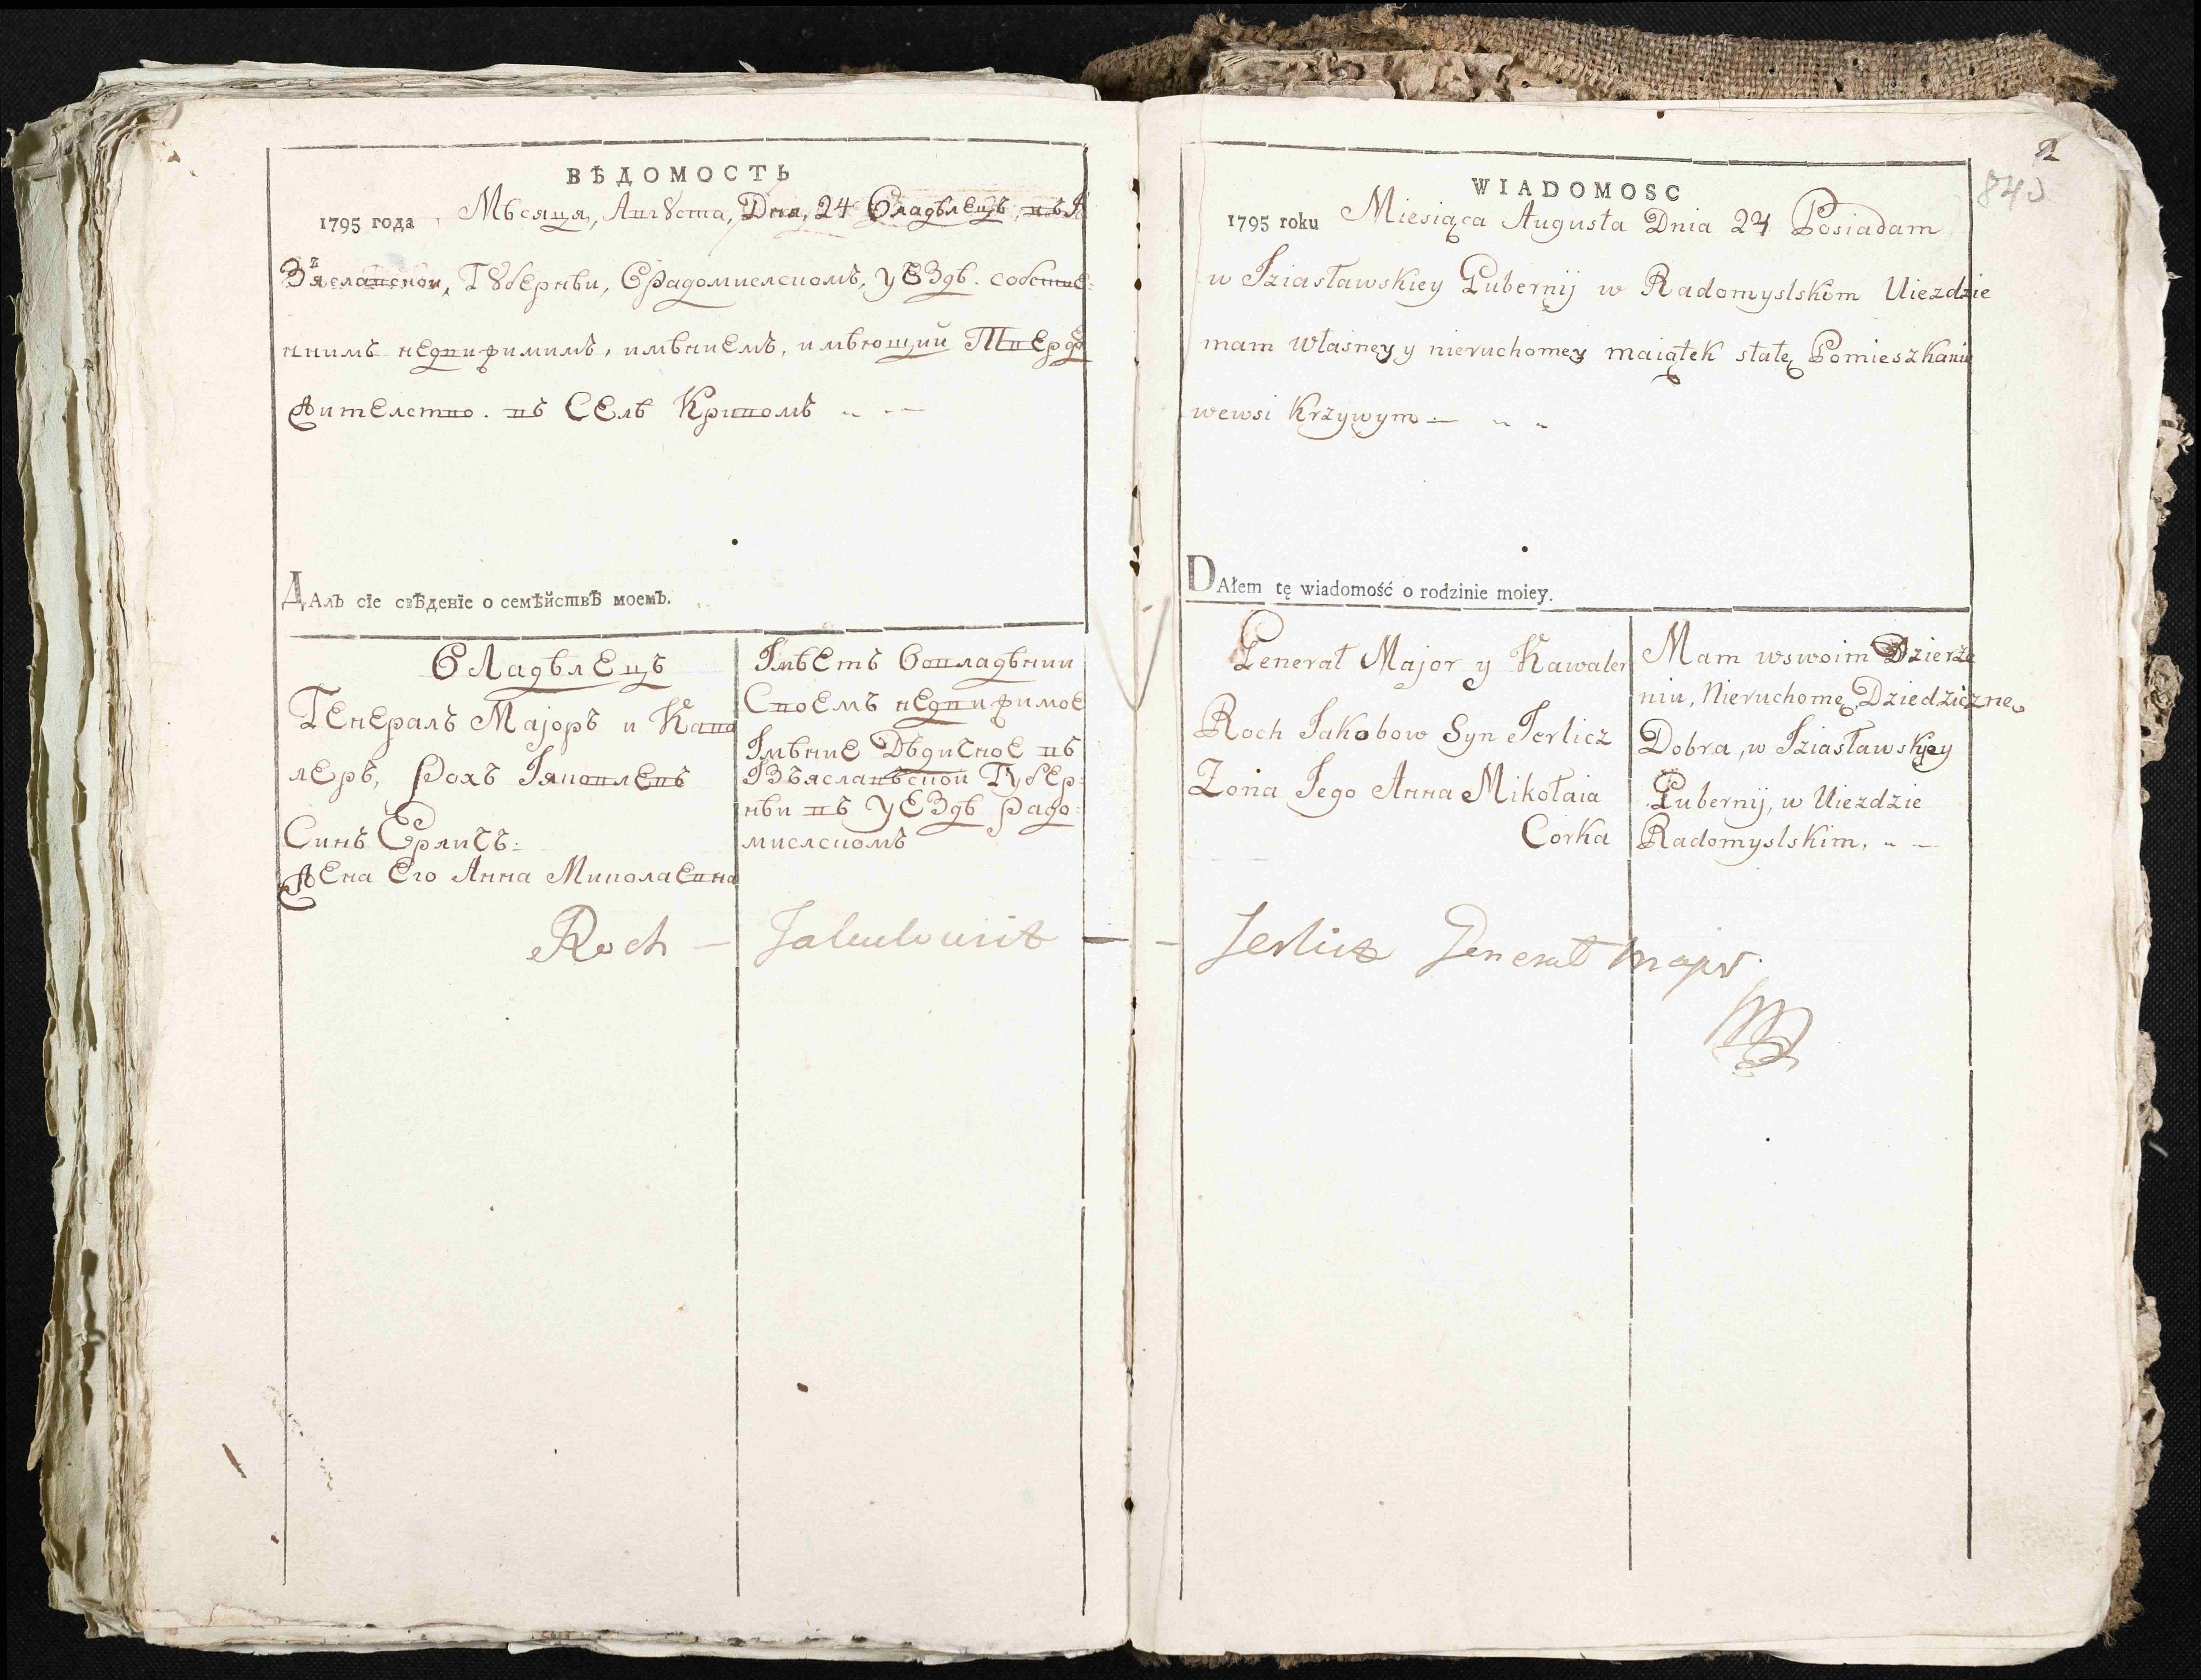 ВѢДОМОСТЬ
1795 года Мѣсяця, Авгꙋста, Дня, 24 Владѣлецъ, въ І
Зъяславской, Гꙋбернѣи, Врадомислскомъ, уездѣ. собстве=
ннимъ недвижимимъ, имѣниемъ, имѣющий Тверде
жителство. въ Селѣ Кривомъ „ -—
ДАлъ сїе свѣденїе о семѣйствѣ моемъ.
Владѣлецъ
Генералъ Маjоръ и Кава
леръ, Рохъ Іяковлевъ
Синъ Ерличъ:
Жена Его Анна Миколаевна
Імѣетъ Вовладѣнии
Своемъ недвижимое
Імѣние Дѣдичное въ
Ізъяславъской Губер=
нѣи въ Уездѣ радо=
мислскомъ
Roch — Jakubowicz —
2
840
WIADOMOSC
1795 roku Miesiąca Augusta Dnia 24 Posiadam
w Iziasławskiey Gubernij w Radomyslskim Uiezdzie
mam Własney y nieruchomey maiątek stałę Pomieszkaniu
wewsi Krzywym — „ „
DAłem tę wiadomość o rodzinie moiey.
Generał Major y Kawaler
Roch Jakobow Syn Jerlicz
Zona Jego Anna Mikołaia
Corka
Mam wswoim Dzierże
niu, Nieruchomę, Dziedziczne
Dobra, w Iziasławskiey
Gubernij, w Uiezdzie
Radomyslskim, „ —
— Jerlicz Generał major.